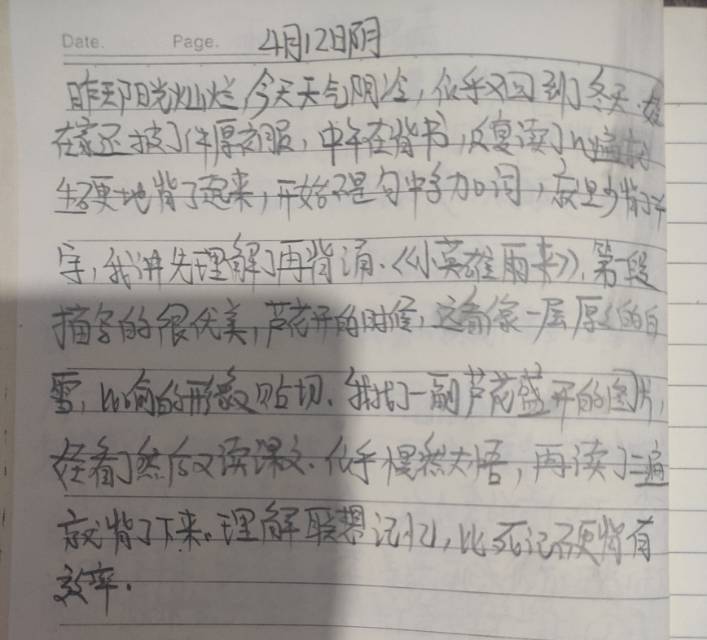 Date. Page. 4月12日阴
昨天阳光灿烂,今天天气阴冷,似乎又回到了冬天.娃
在家还披了件厚衣服,中午在背书,反复读了几遍
生硬地背了起来,开始不是句中多加词,就是少背了
字,我讲先理解了再背诵.《小英雄雨来》,第一段
描写的很优美,芦花开的时候,远看像一层厚厚的白
雪,比喻的形象贴切.我找了一副芦花盛开的图片,
娃看了然后又读课文.似乎慢然大悟,再读了二遍
就背了下来。理解联想记忆,比死记硬背有
效率.